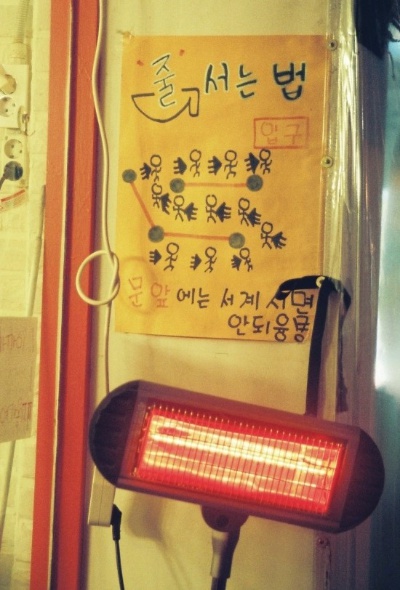 줄 서는 법
입구
문 앞에는 서 계시면
안되용용